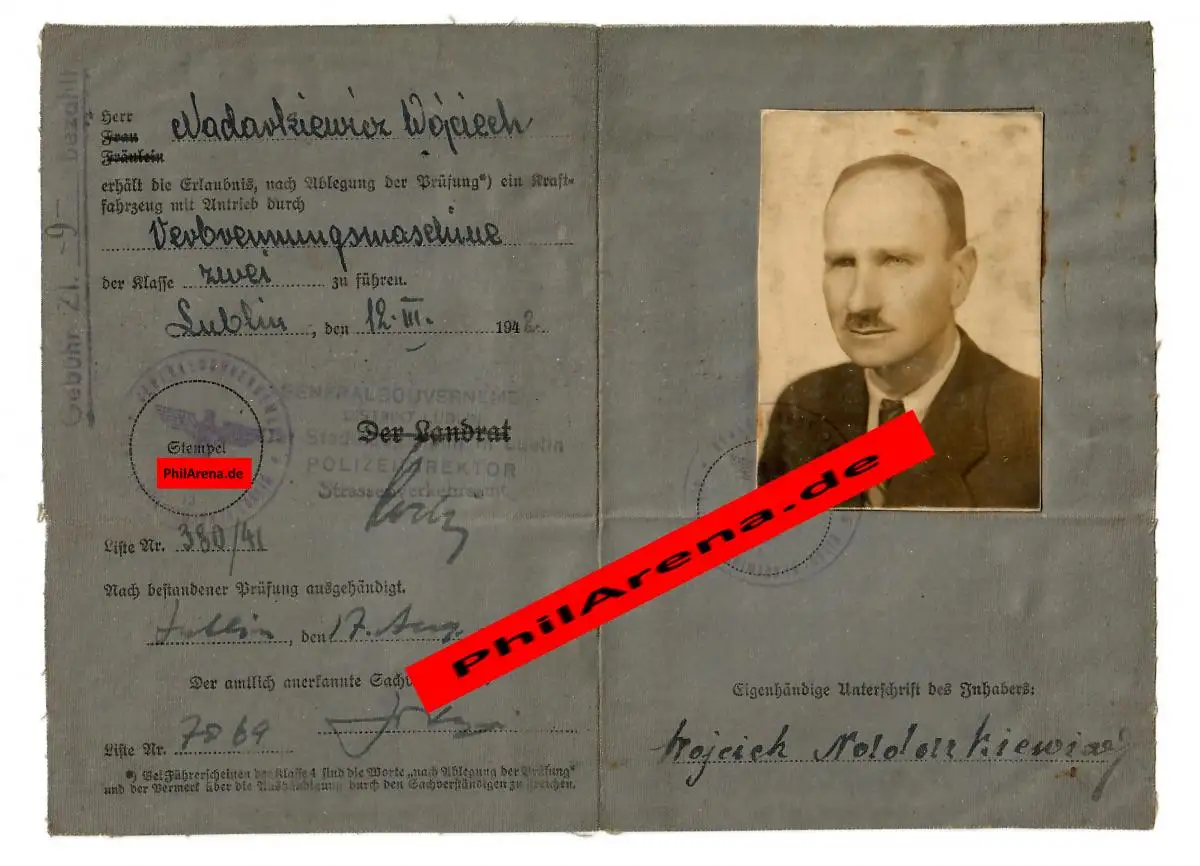 Gebühr Zl. -9- bezahlt
Herr Nadarkiewicz Wójciech
Frau
Fräulein
erhält die Erlaubnis, nach Ablegung der Prüfung*) ein Kraft-
fahrzeug mit Antrieb durch
Verbrennungsmaschine
der Klasse zwei zu führen.
Lublin, den 12. III. 1942.
GENERALGOUVERNEME
DISTRIKT LUBLIN
Der Landrat
Stempel
PhilArena.de
POLIZEIDIREKTOR
Strassenverkehrsamt
Liste Nr. 380/41
Nach bestandener Prüfung ausgehändigt.
Lublin, den 17. Aug.
Der amtlich anerkannte
Liste Nr. 7869
*) Bei Führerscheinen der Klasse 4 sind die Worte „nach Ablegung der Prüfung"
und der Vermerk über die Aushändigung durch den Sachverständigen zu streichen.
PhilArena.de
Eigenhändige Unterschrift des Inhabers:
Wojciech